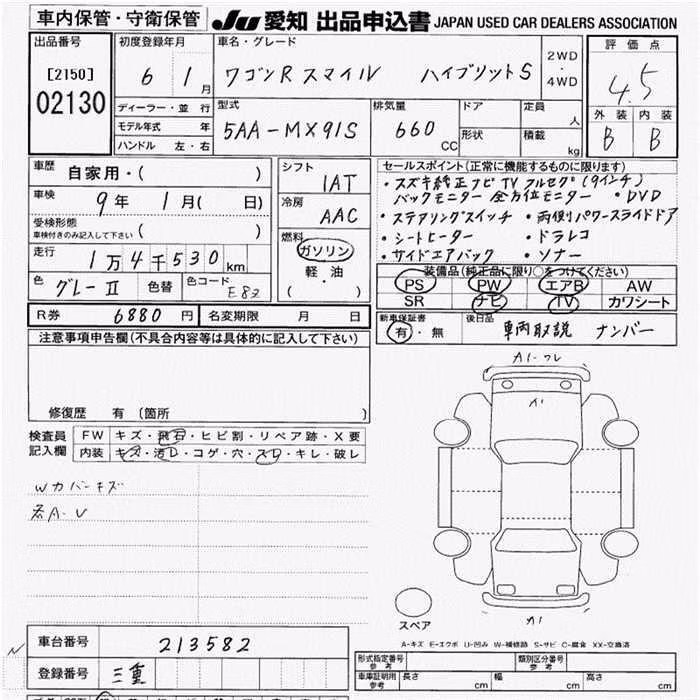 車内保管・守衛保管 JU 愛知 出品申込書 JAPAN USED CAR DEALERS ASSOCIATION
出品番号 初度登録年月 車名・グレード 評価点
[2150] 6 1月 ワゴンR スマイル ハイブリットS 2WD・4WD 4.5
02130 ディーラー・並行 型式 排気量 ドア 定員 人 外装 内装
モデル年式 年 5AA-MX91S 660 CC 形状 積載 kg B B
ハンドル 左・右
車歴 自家用・( ) シフト IAT セールスポイント(正常に機能するものに限ります)
車検 9年 1月( 日) 冷房 AAC ・スズキ純正ナビ TV フルセグ(9インチ)
バックモニター 全方位モニター ・DVD
受検形態 ・ステアリングスイッチ ・両側パワースライドドア
車検付きのみ記入して下さい ( )
走行 1万4千530km 燃料 ガソリン ・シートヒーター ・ドラレコ
軽・油 ・サイドエアバック ・ソナー
色 グレーII 色替 色コード E82 ( ・ ) 装備品(純正品に限り○をつけてください)
PS PW エアB AW
SR ナビ TV カワシート
R券 6880円 名変期限 月 日 新車保証書 有・無 後日品 車両取説 ナンバー
注意事項申告欄(不具合内容等は具体的に記入して下さい)
A1・ワレ
A1
修復歴 有 (箇所 )
検査員 FW キズ・飛石・ヒビ割・リペア跡・X要
記入欄 内装 キズ・汚レ・コゲ・穴・スレ・キレ・破レ
Wカバーキズ
A・U
スペア A1
A-キズ E-エクボ U-凹み W-補修跡 S-サビ C-腐食 XX-交換済
車台番号 213582
形式指定番号 参考 類別区分番号 参考
登録番号 三重 車庫証明用 参考 長さ cm 幅 cm 高さ cm